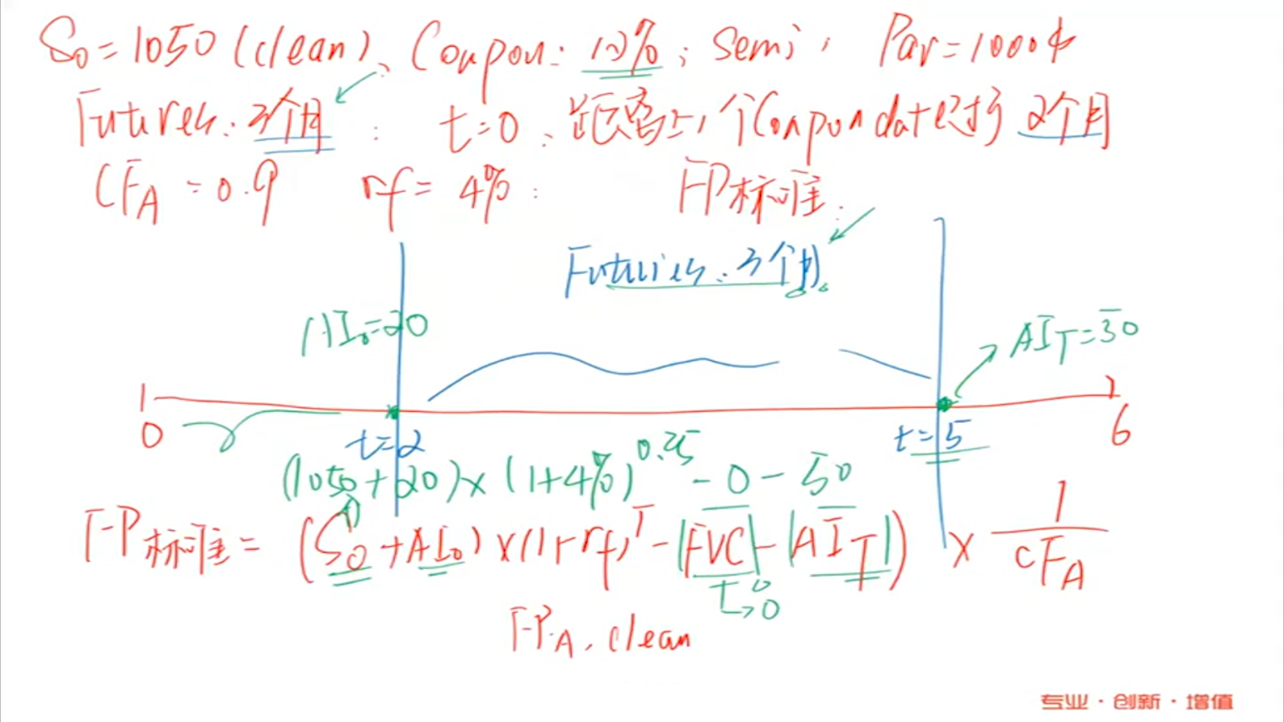 S₀=1050(clean)、Coupon: 10%; Semi, Par=1000$
Futures: 3个月: t=0、距离上个Coupon date已过了2个月
CF_A=0.9 rf=4%: FP标准.
Futures: 3个月.
AI₀=20
AI_T=30
1
0
t=2
t=5
6
(1050+20)×(1+4%)^0.25-0-50
FP标准=(S₀+AI₀)×(1+rf)^T-|FVC|-|AI_T|)×1/CF_A
→0
FP_A. clean
专业·创新·增值